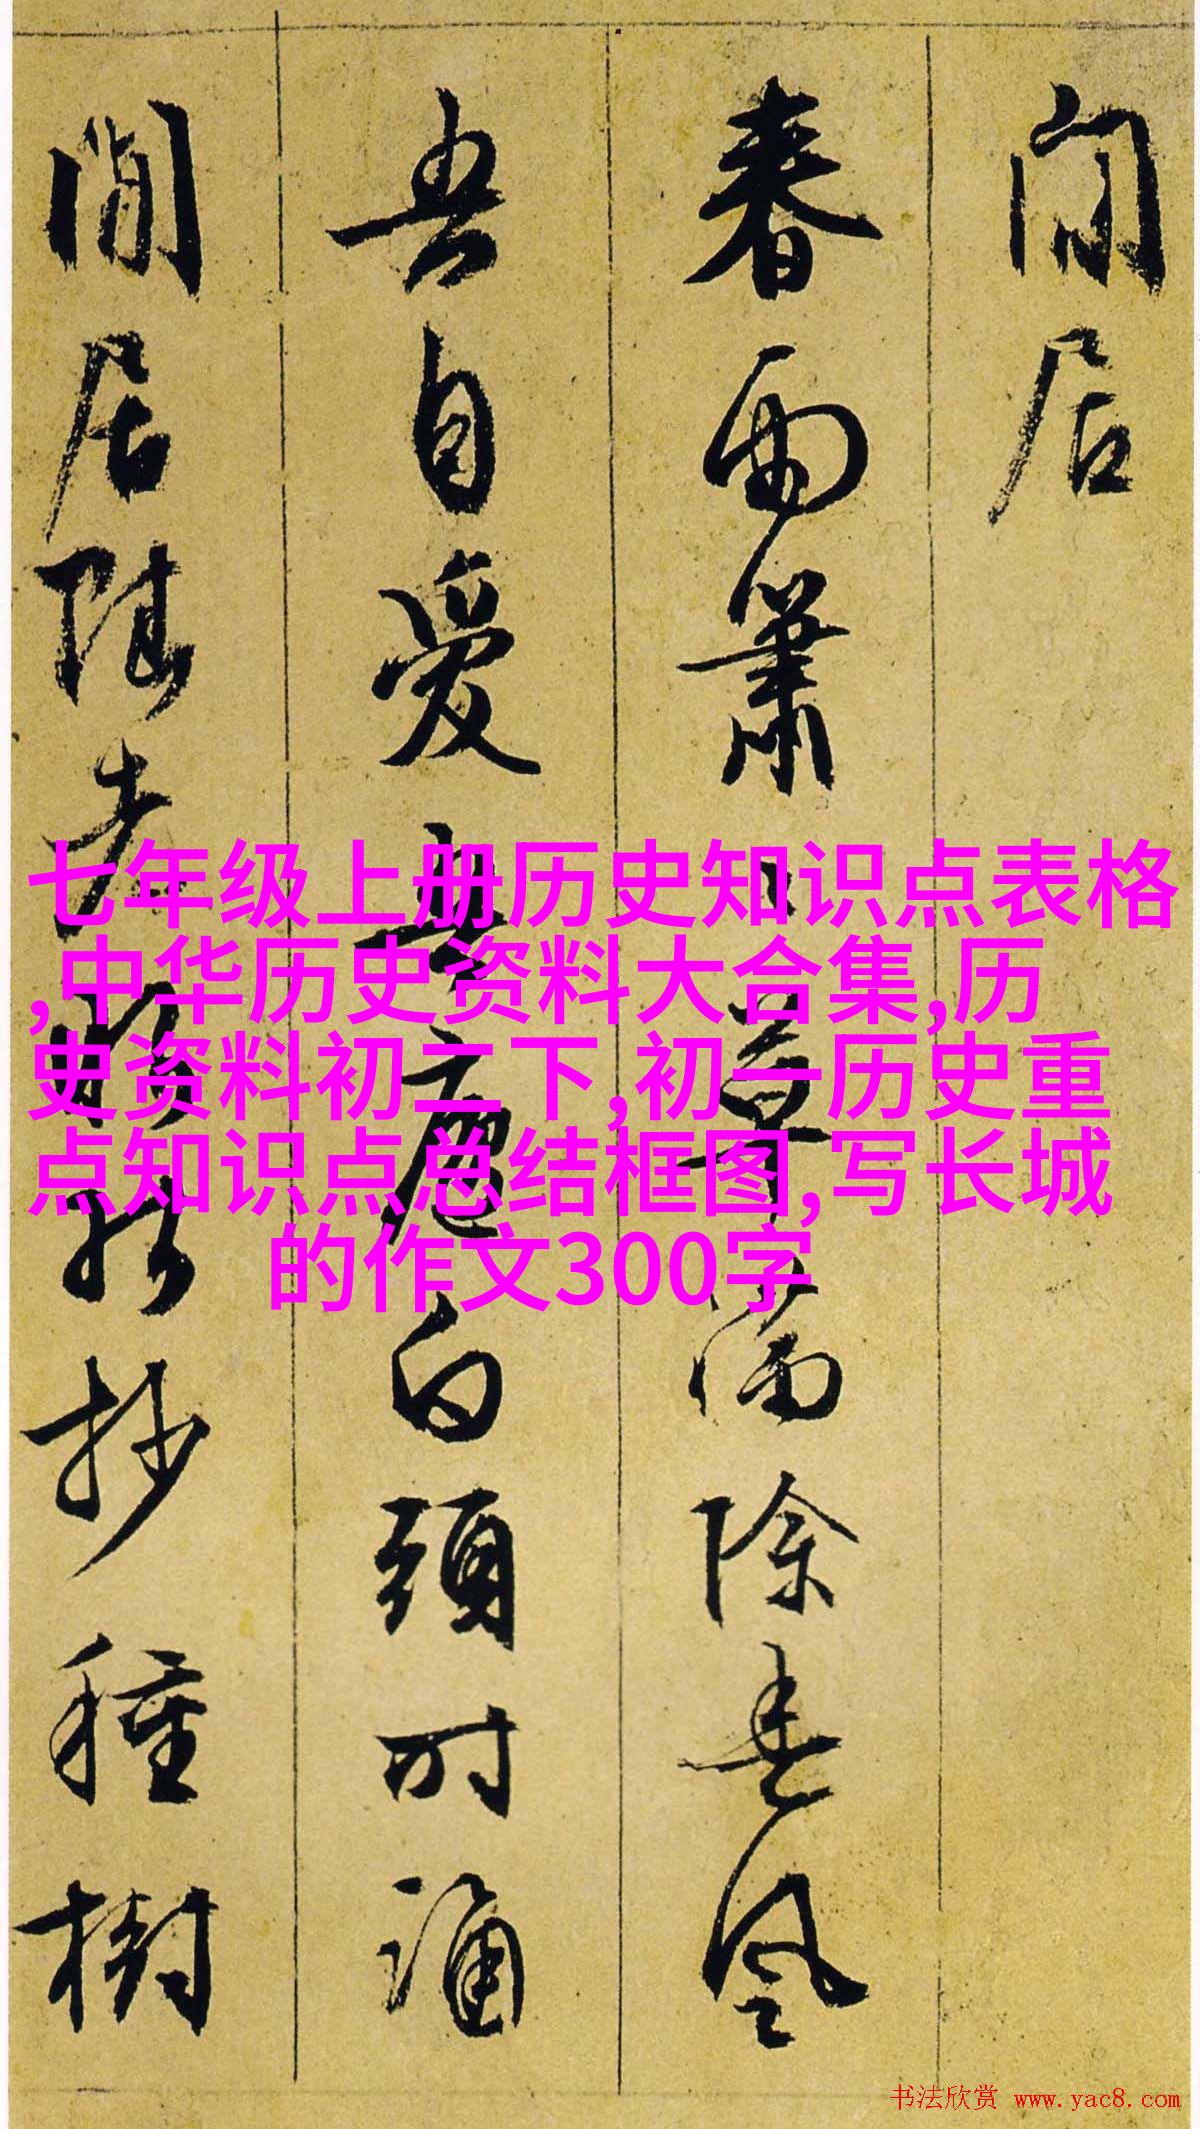 闲居
春雨萧
草满除春风
吾自爱
吾庐白头时诵
闲居
抄种树
七年级上册历史知识点表格
,中华历史资料大合集,历
史资料初二下,初一历史重
点知识点总结框图,写长城
的作文300字
书法欣赏 www.yac8.com